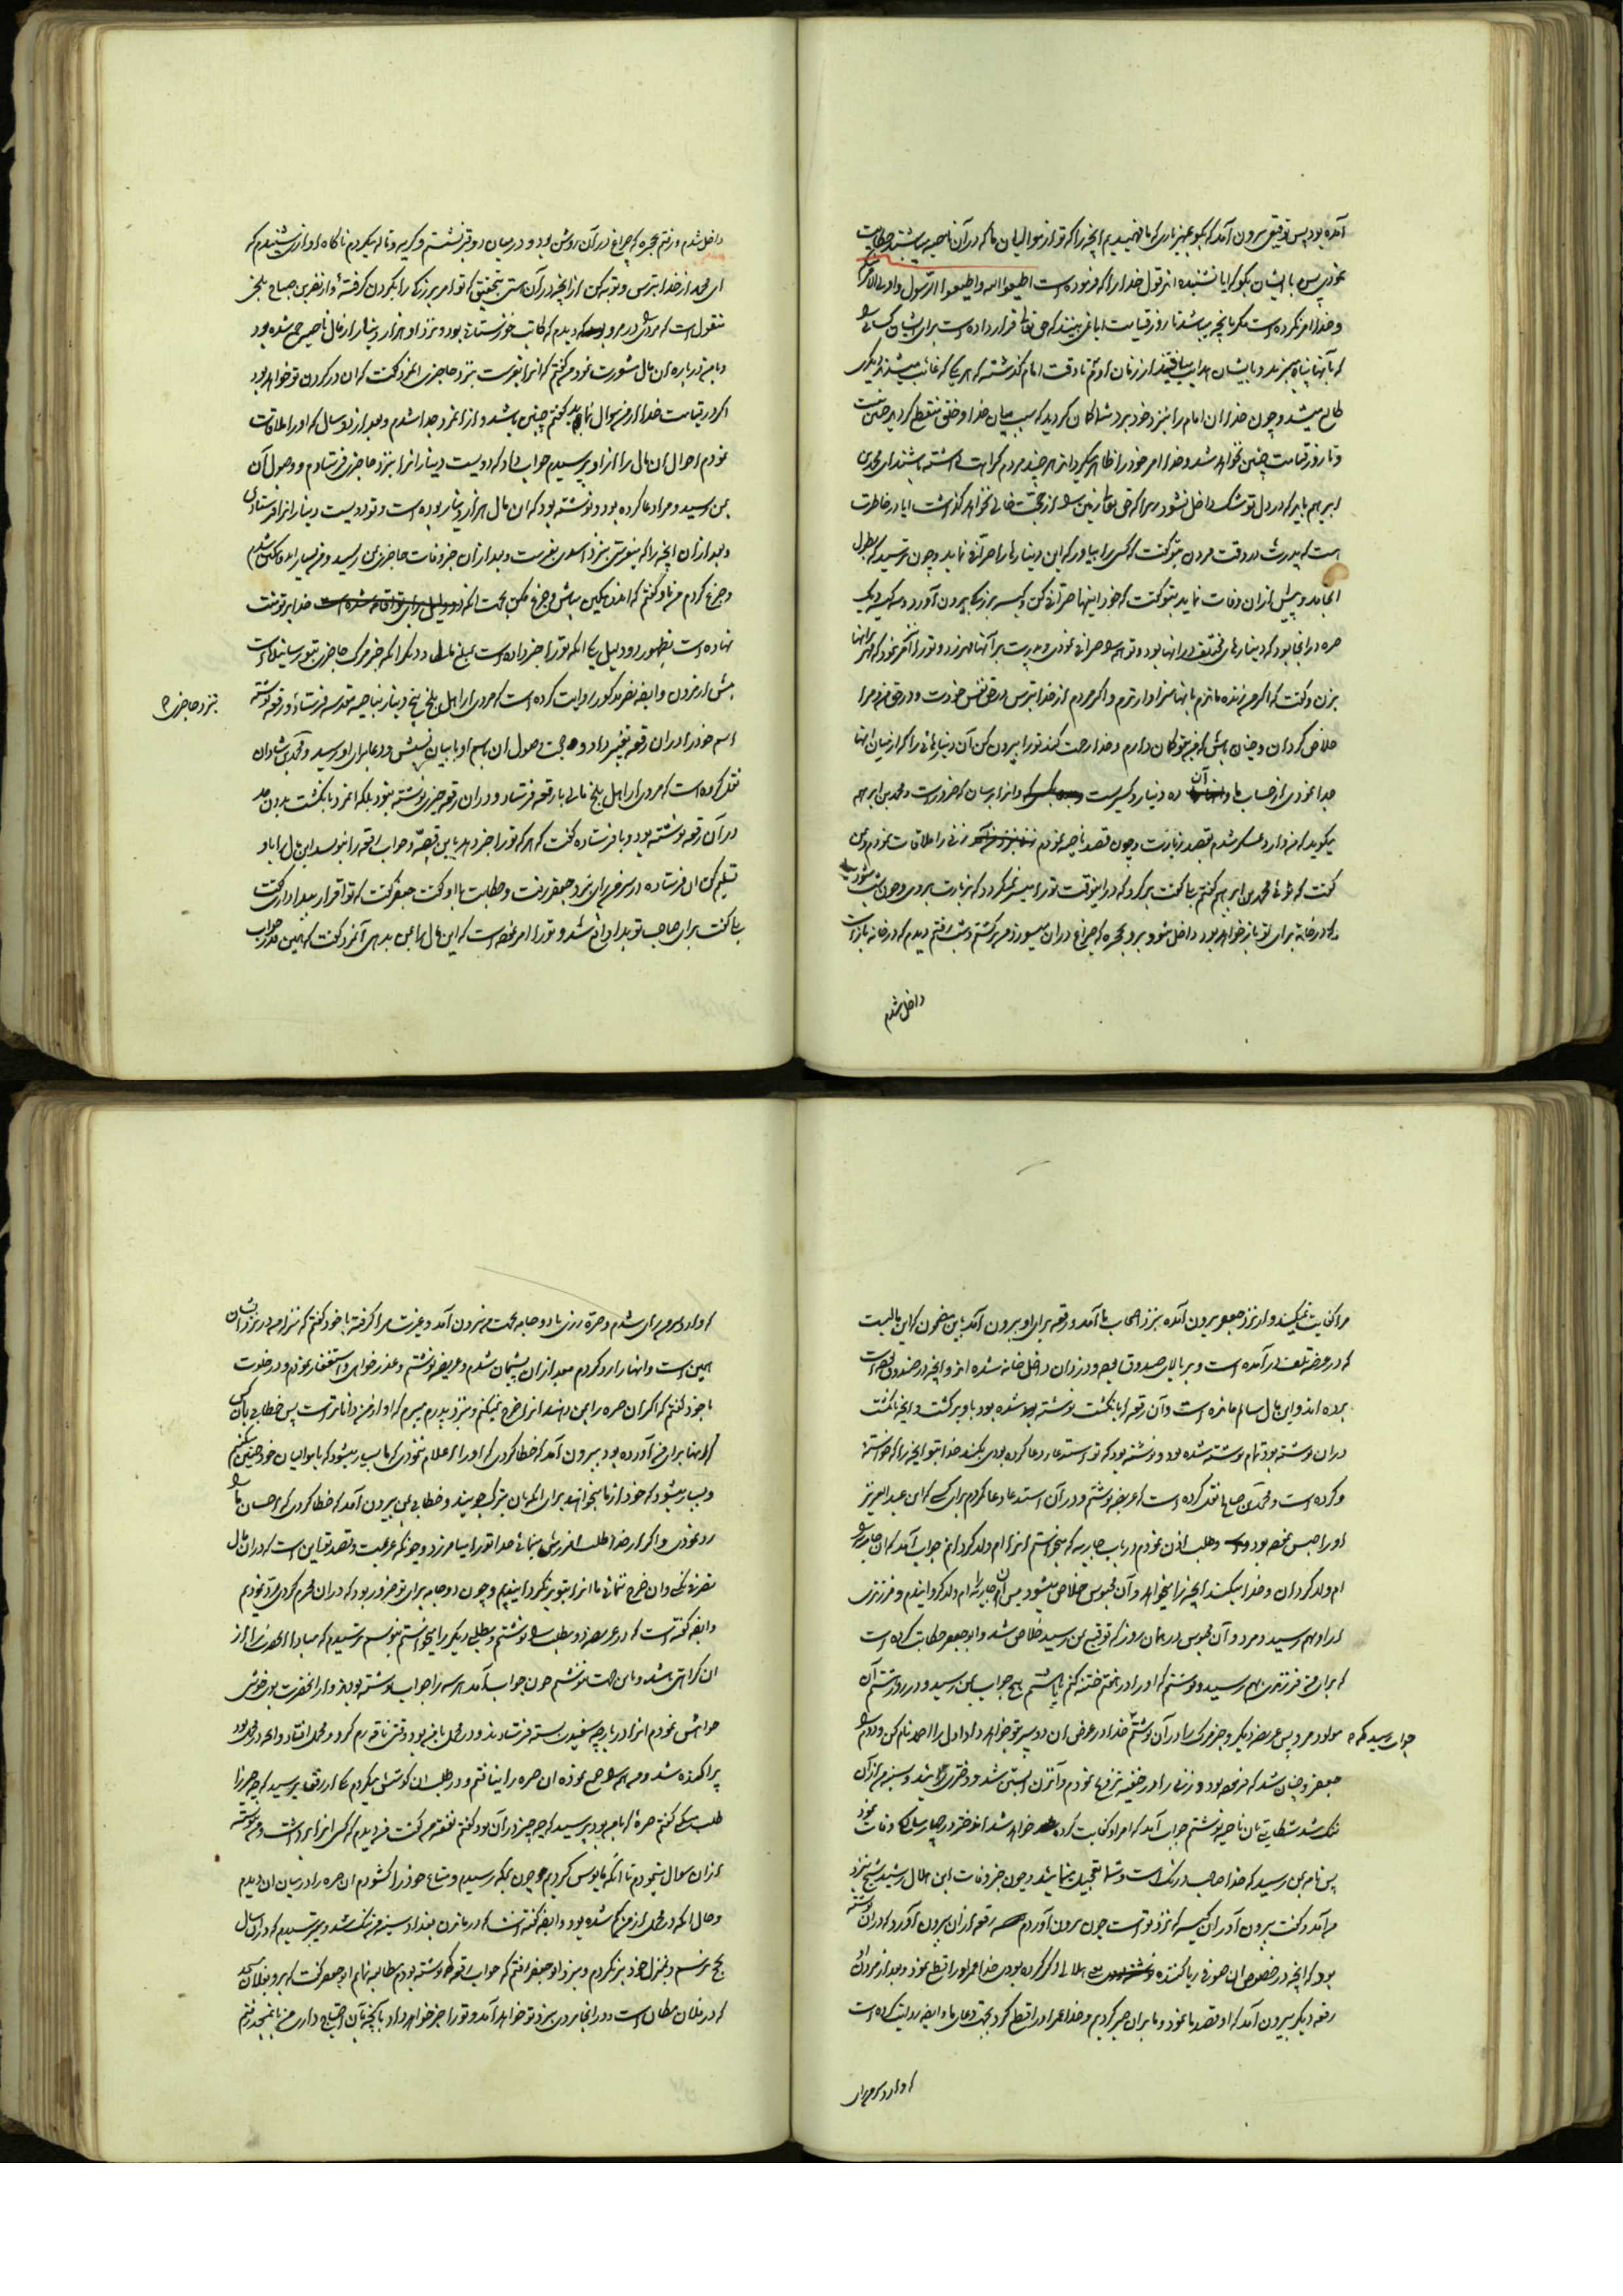 آمده بود پس توقیعی بیرون آمد که بگو بمهزیاری که ما فهمیدیم آنچه را که تو از موالیان ما که در آن ناحیه میباشند حکایت
نمودی پس با ایشان بگو که ایا نشنیده اند قول خدا را که فرموده است اطیعوا الله و اطیعوا الرسول و اولی الامر
و خدا امر نکرده است مگر بآنچه میباشد تا روز قیامت ایا نمی بینند که حق تعالی قرار داده است برای ایشان کسانی
که بآنها پناه میبرند و بایشان هدایت مییافتند از زمان آدم تا وقت امام گذشته که هر یک که غائب میشد دیگری
طالع میشد و چون خدا ان امام را بنزد خود برد شما گمان کردید که سبب میان خدا و خلق منقطع گردید چنین نیست
و تا روز قیامت چنین نخواهد شد و خدا امر خود را ظاهر میگرداند هر چند مردم کراهت داشته باشند ای محمد بن
ابرهیم باید که در دل تو شک داخل نشود زیرا که حق تعالی زمین را از حجت خالی نخواهد گذاشت ایا در خاطرت
است که پدرت در وقت مردن بتو گفت که کسی را بیاور که این دینارها را صرافی نماید و چون ترسید که بطول
انجامد و پیش از ان وفات نماید بتو گفت که خود اینها را صرافی کن و کیسه بزرگ بیرون آورد و سه کیسه و یک
صره در انجا بود که دینارهای مختلف در انها بود و تو همه را صرافی نمودی و پدرت بر آنها مهر زد و تو را امر نمود که مهر بر انها
بزن و گفت که اگر من زنده ماندم بانها سزاوارترم و اگر مردم از خدا بترس در حق نفس خودت و در حق من و مرا
خلاص گردان و چنان باش که من بتو گمان دارم و خدا رحمت کند تو را بیرون کن آن دینارهائی را که از میان انها
جدا نمودی از حساب ما و آن ده دینار و کسر است و انرا برسان که ضرور است و محمد بن ابرهیم
میگوید که من وارد عسکر شدم بقصد زیارت و چون قصد ناحیه نمودم زنی را ملاقات نمودم و بمن
گفت که توئی محمد بن ابرهیم گفتم بلی گفت برگرد که در اینوقت تو را میسر نمیگردد که بزیارت بروی و چون شب شود بیا
که در خانه برای تو باز خواهد بود داخل شو و برو بحجره که چراغ در ان میسوزد من برگشتم و شب رفتم دیدم که در خانه باز است
داخل شدم
داخل شدم و رفتم بحجره که چراغ در آن روشن بود و در میان دو قبر نشستم و گریه و ناله میکردم ناگاه اوازی شنیدم که
ای محمد از خدا بترس و توبه کن از آنچه در آن هستی بتحقیق که تو امر بزرگی را بگردن گرفته و از نضر بن صباح بلخی
منقول است که مردی در مرو دیدم که کاتب خوزستانی بود و نزد او هزار دینار از مال ناحیه جمع شده بود
و با من در باره ان مال مشورت نمود من گفتم که انرا بفرست بنزد حاجزی انمرد گفت که ان در گردن تو خواهد بود
اگر در قیامت خدا از من سوال نماید گفتم چنین باشد و از انمرد جدا شدم و بعد از دو سال که او را ملاقات
نمودم احوال ان مال را از او پرسیدم جواب داد که دویست دینار انرا بنزد حاجزی فرستادم و وصول آن
بمن رسید و مرا دعا کرده بود و نوشته بود که ان مال هزار دینار بوده است و تو دویست دینار انرا فرستادی
و بعد از ان آنچه را که میفرستی بنزد اسدی بفرست و بعد از ان خبر وفات حاجزی بمن رسید و من بسیار اندوهگین شدم
و جزع کردم من باو گفتم که اندوهگین مباش و جزع مکن بجهت آنکه خدا بر تو منت
نهاده است بظهور دو دلیل یکی آنکه تو را خبر داده است بمبلغ مال و دیگر آنکه خبر مرگ حاجزی بتو رسانیده است
پیش از مردن و ایضا نضر مذکور روایت کرده است که مردی از اهل بلخ پنج دینار بناحیه مقدسه فرستاد و رقعه نوشته
بنزد حاجزی
اسم خود را در ان رقعه تغییر داد و حجت وصول ان باسم او با بیان نسبش و دعا برای او رسید و محمد بن شاذان
نقل کرده است که مردی از اهل بلخ مالی با رقعه فرستاد و در ان رقعه چیزی نوشته نبود بلکه انمرد بانگشت بدون مد
در آن رقعه نوشته بود و با فرستاده گفت که هر که تو را خبر دهد باین قصه و جواب رقعه را بنویسد این مال را باو
تسلیم کن ان فرستاده در سرمن رای نزد جعفر رفت و حکایت با او گفت جعفر گفت که تو اقرار ببدا داری گفت
بلی گفت برای صاحب تو بدا واقع شد و تو را امر نموده است که این مال را بمن بدهی آنمرد گفت که همین قدر جواب
مرا کفایت نمیکند و از نزد جعفر بیرون آمده بنزد اصحاب ما آمد و رقعه برای او بیرون آمد باین مضمون که این مالیست
که در معرض تلف در آمده است و بر بالای صندوق بود و دزدان داخل خانه شده اند و آنچه در صندوق بود
برده اند و این مال سالم مانده است و آن رقعه که بانگشت نوشته شده بود باو برگشت و آنچه بانگشت
در ان نوشته بود تمام نوشته شده بود و نوشته بود که تو استدعای دعا کرده بودی بکند خدا بتو آنچه را که خواستی
و کرده است و محمد بن صالح نقل کرده است که عریضه نوشتم و در آن استدعای دعا کردم برای کسی که ابن عبد العزیز
او را حبس نموده بود و طلب اذن نمودم در باب جاریه که میخواستم انرا ام ولد گردانم جواب آمد که ان جاریه را
ام ولد گردان و خدا میکند آنچه را میخواهد و آن محبوس خلاص میشود پس ان جاریه را ام ولد گردانیدم و فرزندی
از او بهم رسید و مرد و آن محبوس در همان روز که توقیع بمن رسید خلاص شد و ابو جعفر حکایت کرده است
که برای من فرزندی بهم رسید و نوشتم که او را در هفتم ختنه کنم یا نه هیچ جواب بمن نرسید و در روز هشتم آن
مولود مرد پس عریضه دیگر و خبر مرگ را در آن نوشتم
جواب رسید که
خدا در عوض ان دو پسر بتو خواهد داد اول را احمد نام کن و دوم را
جعفر و چنان شد که فرموده بود و زنی را در خفیه تزویج نمودم و آنزن آبستن شد و دختری زائید و سینه من از آن
تنگ شد شکایت بان ناحیه نوشتم جواب آمد که امر او کفایت کرده خواهد شد اندختر در چهار سالگی وفات نمود
پس نامه بمن رسید که خدا صاحب درنگ است و شما تعجیل مینمائید و چون خبر وفات ابن هلال رسید شیخ نزد
من آمد و گفت بیرون آور ان کیسه که نزد تو است چون بیرون آوردم رقعه از ان بیرون آورد که در ان نوشته
بود که آنچه در خصوص ان صوفی ریا کننده هلالی ذکر کرده بودی خدا عمر او را قطع نمود و بعد از مردن او
رقعه دیگر بیرون آمد که او قصد ما نمود و ما بر ان صبر کردیم و خدا عمر او را قطع کرد بجهت دعای ما و ایضا روایت کرده است
که وارد سرمن رای
که وارد سرمن رای شدم و صره زری با دو جامه بجهت من بیرون آمد و عزت مرا گرفته با خود گفتم که منزله من در نزد ایشان
همین است و انها را رد کردم بعد از ان پشیمان شدم و عریضه نوشتم و عذر خواهی و استغفار نمودم و در خلوت
با خود گفتم که اگر ان صره را بمن دهند انرا خرج نمیکنم و بنزد پدرم میبرم که او از من داناتر است پس خطابی بان کسی
که انها برای من آورده بود بیرون آمد که خطا کردی که او را اعلام ننمودی که ما بسیار میشود که با موالیان خود چنین میکنیم
و بسیار میشود که خود از ما میخواهند برای آنکه بان تبرک جویند و خطابی بمن بیرون آمد که خطا کردی که احسان ما را
رد نمودی و اگر از خدا طلب آمرزش مینمائی خدا تو را بیامرزد و چونکه عزیمت و قصد تو این است که در ان مال
تصرف نکنی و ان خرج ننمائی ما انرا بتو بر نگردانیدیم و چون دو جامه برای تو ضرور بود که در ان محرم گردی رد نمودیم
و ایضا گفته است که در عریضه دو مطلب را نوشتم و مطلبی دیگر را میخواستم بنویسم ترسیدم که مبادا آنحضرت را از
ان کراهتی باشد و باین جهت ننوشتم چون جواب آمد هر سه را جواب نوشته بودند و از آنحضرت بوی خوشی
خواهش نمودم انرا در پارچه سفید بسته فرستادند و در محمل با من بود وقتی ناقه رم کرد و محمل افتاد و آنچه در محمل بود
پراکنده شد و من همه را جمع نموده ان صره را نیافتم و در طلب ان کوشش میکردم یکی از رفقا پرسید که چه چیز را
طلب میکنی گفتم صره که با من بود پرسید که چه چیز در آن بود گفتم نفقه من گفت من دیدم که کسی انرا برداشت و من پیوسته
از ان سوال مینمودم تا آنکه مایوس گردیدم و چون بمکه رسیدم و متاع خود را گشودم ان صره را در میان ان دیدم
و حال آنکه در محمل از من گم شده بود و ایضا گفته است که در ماندن بغداد سینه من تنگ شد و میترسیدم که در ان سال
بحج نرسم و بمنزل خود بر نگردم و بنزد ابو جعفر رفتم که جواب رقعه که نوشته بودم مطالبه نمایم ابو جعفر گفت که برو بفلان مسجد
که در فلان مکان است و در انجا مردی بنزد تو خواهد آمد و تو را خبر خواهد داد بآنچه بآن احتیاج داری من بانمسجد رفتم